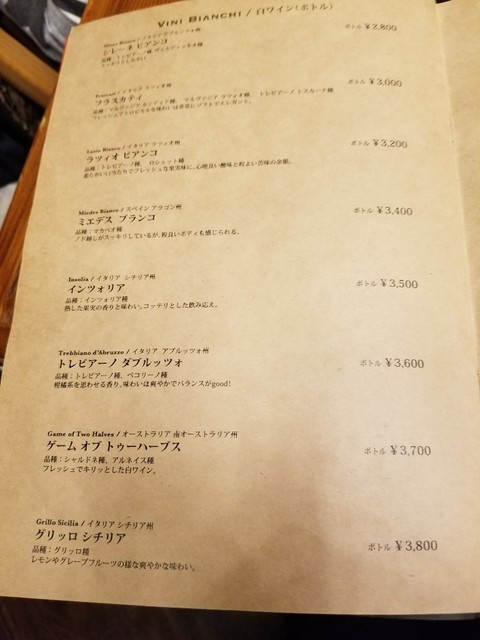 VINI BIANCHI / 白ワイン(ボトル)
Bianco / イタリア アブルッツォ州
シレーネ ビアンコ ボトル ¥2,800
品種:トレビアーノ種
Frascati / イタリア ラツィオ州
フラスカティ ボトル ¥3,000
品種:マルヴァジア カンディア種、マルヴァジア ラツィオ種、トレビアーノ トスカーナ種
フレッシュでトロピカルな味わいは非常にソフトでエレガント。
Lazio Bianco / イタリア ラツィオ州
ラツィオ ビアンコ ボトル ¥3,200
品種:トレビアーノ種、ロシェット種
柔らかい口当たりでフレッシュな果実味に、心地良い酸味と程よい苦味の余韻。
Miedes Bianco / スペイン アラゴン州
ミエデス ブランコ ボトル ¥3,400
品種:マカベオ種
ノド越しがスッキリしているが、程良いボディも感じられる。
Insolia / イタリア シチリア州
インツォリア ボトル ¥3,500
品種:インツォリア種
熟した果実の香りと味わい。コッテリとした飲み応え。
Trebbiano d'Abruzzo / イタリア アブルッツォ州
トレビアーノ ダブルッツォ ボトル ¥3,600
品種:トレビアーノ種、ペコリーノ種
柑橘系を思わせる香り。味わいは爽やかでバランスがgood!
Game of Two Halves / オーストラリア 南オーストラリア州
ゲーム オブ トゥーハーブス ボトル ¥3,700
品種:シャルドネ種、アルネイス種
フレッシュでキリッとした白ワイン。
Grillo Sicilia / イタリア シチリア州
グリッロ シチリア ボトル ¥3,800
品種:グリッロ種
レモンやグレープフルーツの様な爽やかな味わい。